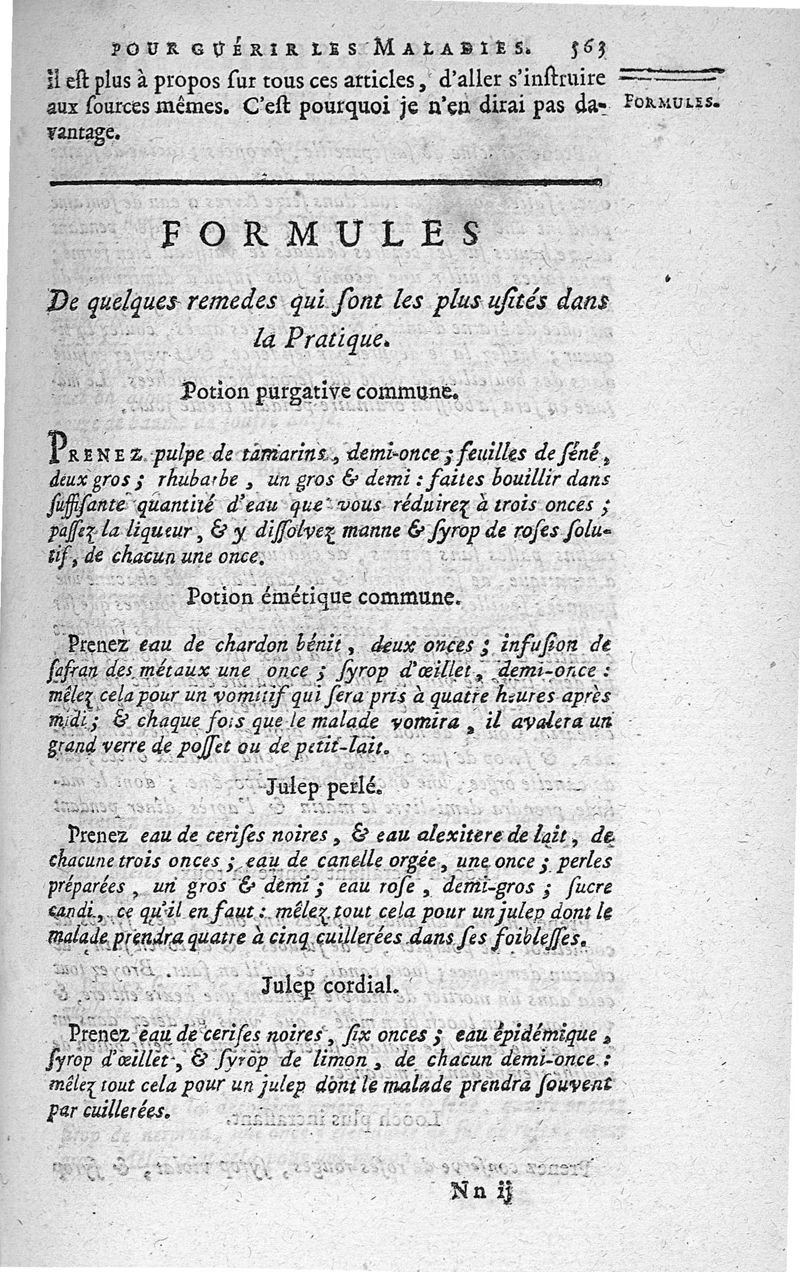 POUR GUÉRIR LES MALADIES. 563
il eſt plus à propos ſur tous ces articles, d'aller s'inſtruire
aux ſources mêmes. C'eſt pourquoi je n'en dirai pas da-
vantage.
FORMULES.
FORMULES
De quelques remedes qui ſont les plus uſités dans
la Pratique.
Potion purgative commune.
PRENEZ pulpe de tamarins, demi-once; feuilles de ſéné,
deux gros; rhubarbe, un gros & demi: faites bouillir dans
ſuffiſante quantité d'eau que vous réduirez à trois onces;
paſſez la liqueur, & y diſſolvez manne & ſyrop de roſes ſolu-
tif, de chacun une once.
Potion émétique commune.
Prenez eau de chardon bénit, deux onces; infuſion de
ſafran des métaux une once; ſyrop d'œillet, demi-once:
mêlez cela pour un vomitif qui ſera pris à quatre heures après
midi; & chaque fois que le malade vomira, il avalera un
grand verre de poſſet ou de petit-lait.
Julep perlé.
Prenez eau de ceriſes noires, & eau alexitere de lait, de
chacune trois onces; eau de canelle orgée, une once; perles
préparées, un gros & demi; eau roſe, demi-gros; ſucre
candi, ce qu'il en faut: mêlez tout cela pour un julep dont le
malade prendra quatre à cinq cuillerées dans ſes foibleſſes.
Julep cordial.
Prenez eau de ceriſes noires, ſix onces; eau épidémique,
ſyrop d'œillet, & ſyrop de limon, de chacun demi-once:
mêlez tout cela pour un julep dont le malade prendra ſouvent
par cuillerées.
Nn ij